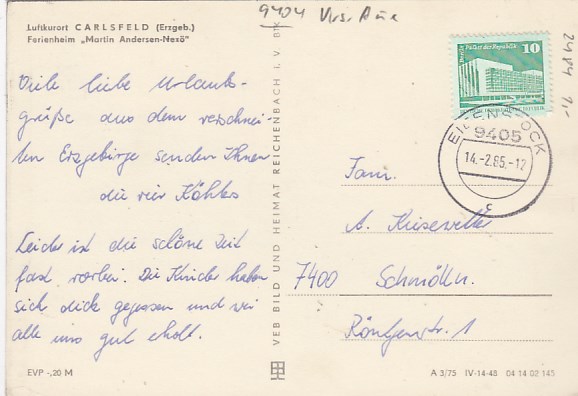 Luftkurort CARLSFELD (Erzgeb.)
Ferienheim „Martin Andersen-Nexö"
9404 Krs. Aue
2484 1,-
Viele liebe Urlaubs-
grüße aus dem verschnei-
ten Erzgebirge senden Ihnen
die vier Köhlers
Leider ist die schöne Zeit
fast vorbei. Die Kinder haben
sich dick gegessen und wir
alle uns gut erholt.
VEB BILD UND HEIMAT REICHENBACH I. V. BK
Berlin, Palast der Republik
10
EIBENSTOCK
9405
14.-2.85.-12
c
Fam.
A. Kiesewetter
7400 Schmölln
Röntgenstr. 1
EVP -,20 M
A 3/75 IV-14-48 04 14 02 145